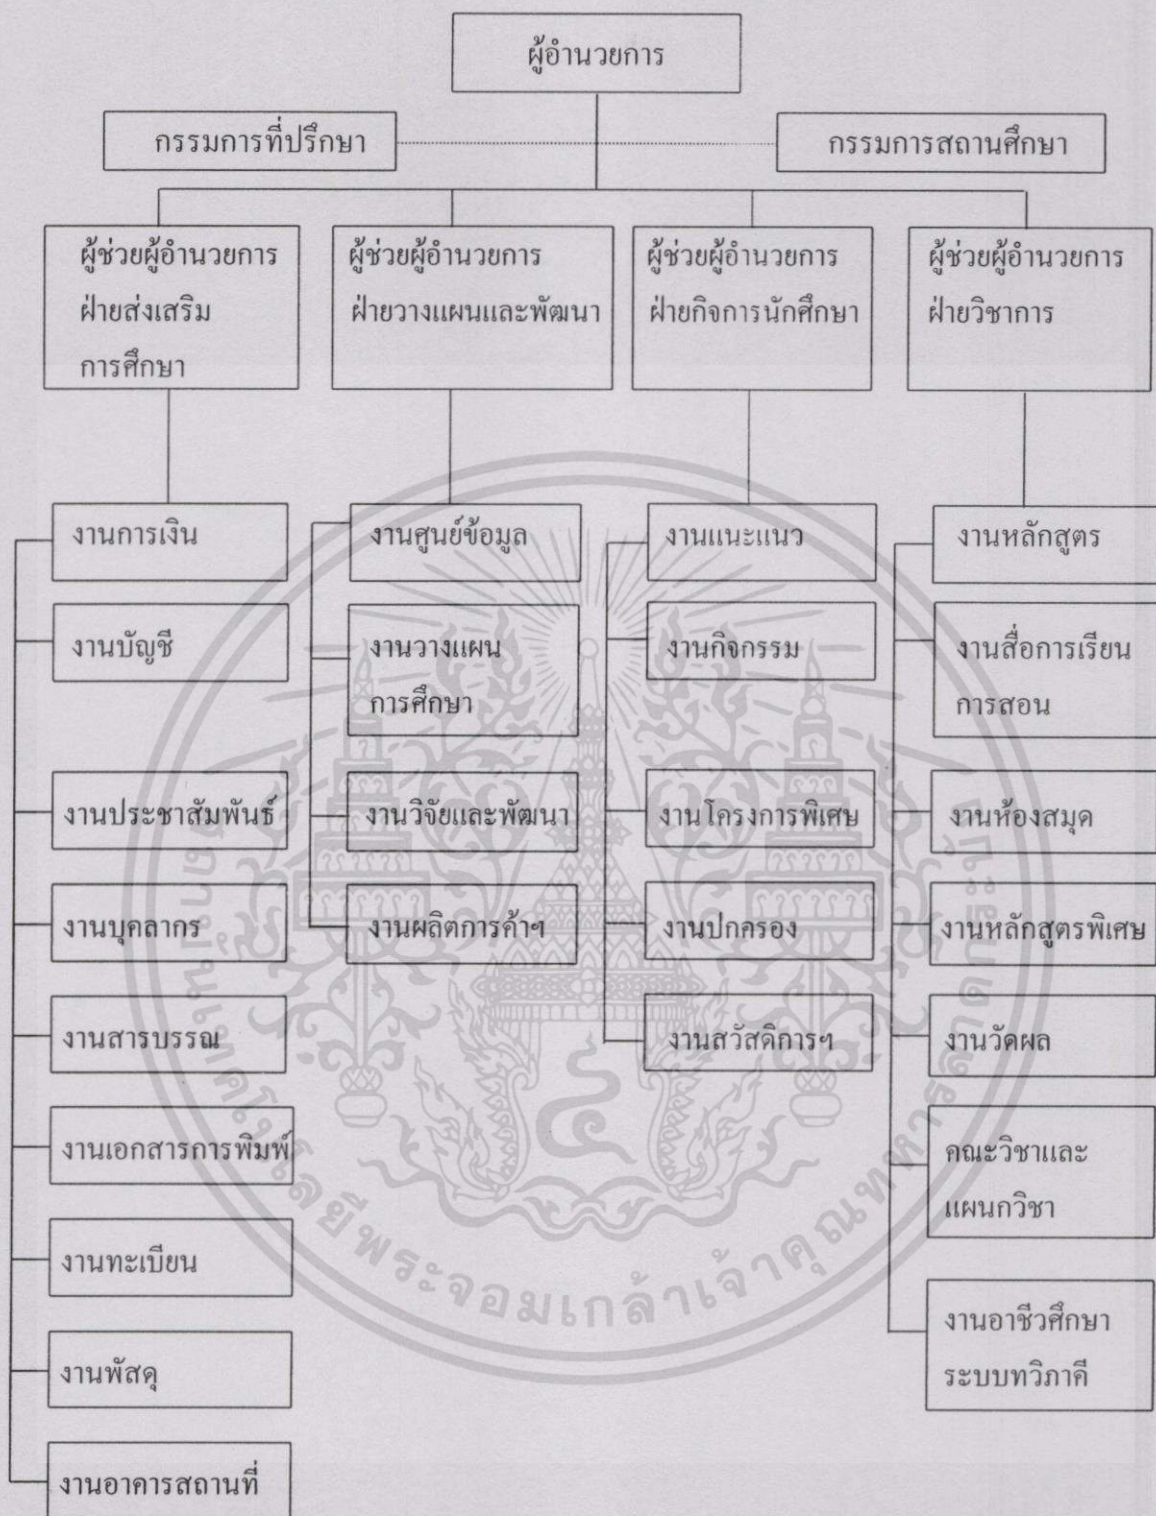 ผู้อำนวยการ
กรรมการที่ปรึกษา
กรรมการสถานศึกษา
ผู้ช่วยผู้อำนวยการ
ฝ่ายส่งเสริม
การศึกษา
ผู้ช่วยผู้อำนวยการ
ฝ่ายวางแผนและพัฒนา
ผู้ช่วยผู้อำนวยการ
ฝ่ายกิจการนักศึกษา
ผู้ช่วยผู้อำนวยการ
ฝ่ายวิชาการ
งานการเงิน
งานบัญชี
งานประชาสัมพันธ์
งานบุคลากร
งานสารบรรณ
งานเอกสารการพิมพ์
งานทะเบียน
งานพัสดุ
งานอาคารสถานที่
งานศูนย์ข้อมูล
งานวางแผน
การศึกษา
งานวิจัยและพัฒนา
งานผลิตการค้าฯ
งานแนะแนว
งานกิจกรรม
งานโครงการพิเศษ
งานปกครอง
งานสวัสดิการฯ
งานหลักสูตร
งานสื่อการเรียน
การสอน
งานห้องสมุด
งานหลักสูตรพิเศษ
งานวัดผล
คณะวิชาและ
แผนกวิชา
งานอาชีวศึกษา
ระบบทวิภาคี
สถาบันเทคโนโลยีพระจอมเกล้าเจ้าคุณทหารลาดกระบัง